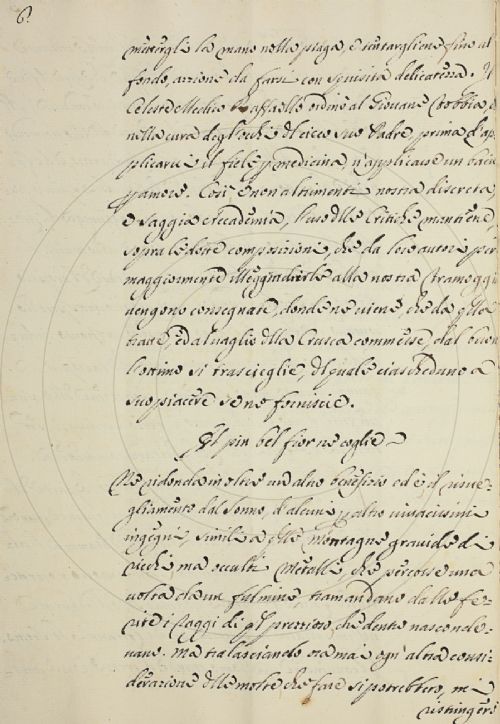 6
mettergli la mano nella piaga, e tentargliene fino al
fondo, azzione da farsi con squisita delicatezza. Il
Celeste Medico Raffaello ordinò al Giovane Tobbia,
nella cura degl'occhi del cieco suo Padre, prima d'ap
plicarvi il fiele p medicina, n'applicasse un bacio
p amore. Così e non altrimenti nostra discreta,
e saggia Accademia, l'uso delle Critiche mantiene,
sopra le dette composizioni, che da loro autori per
maggiormente illeggiadrirle alla nostra
vengono consegnate, donde ne viene, che da
tratte, ed al vaglio della Crusca commesse, dal buon
l'ottimo si trasceglie, del quale ciascheduno a
suo piacere se ne fornisce.
Il più bel fior ne coglie
Ne ridonda inoltre un altro benefisio ed è il risve-
gliamento dal sonno, d'alcuni p altro vivacissimi
ingegni, simili a delle Montagne gravide di
ricchi ma occulti Metalli, che percosse una
volta da un fulmine, tramandano dalle fe-
rite i raggi di quel prezzioso, che dentro nasconde-
vano. Ma tralasciando oramai ogn'altra consi-
derazione delle molte che fare si potrebbero, mi
ristringerò